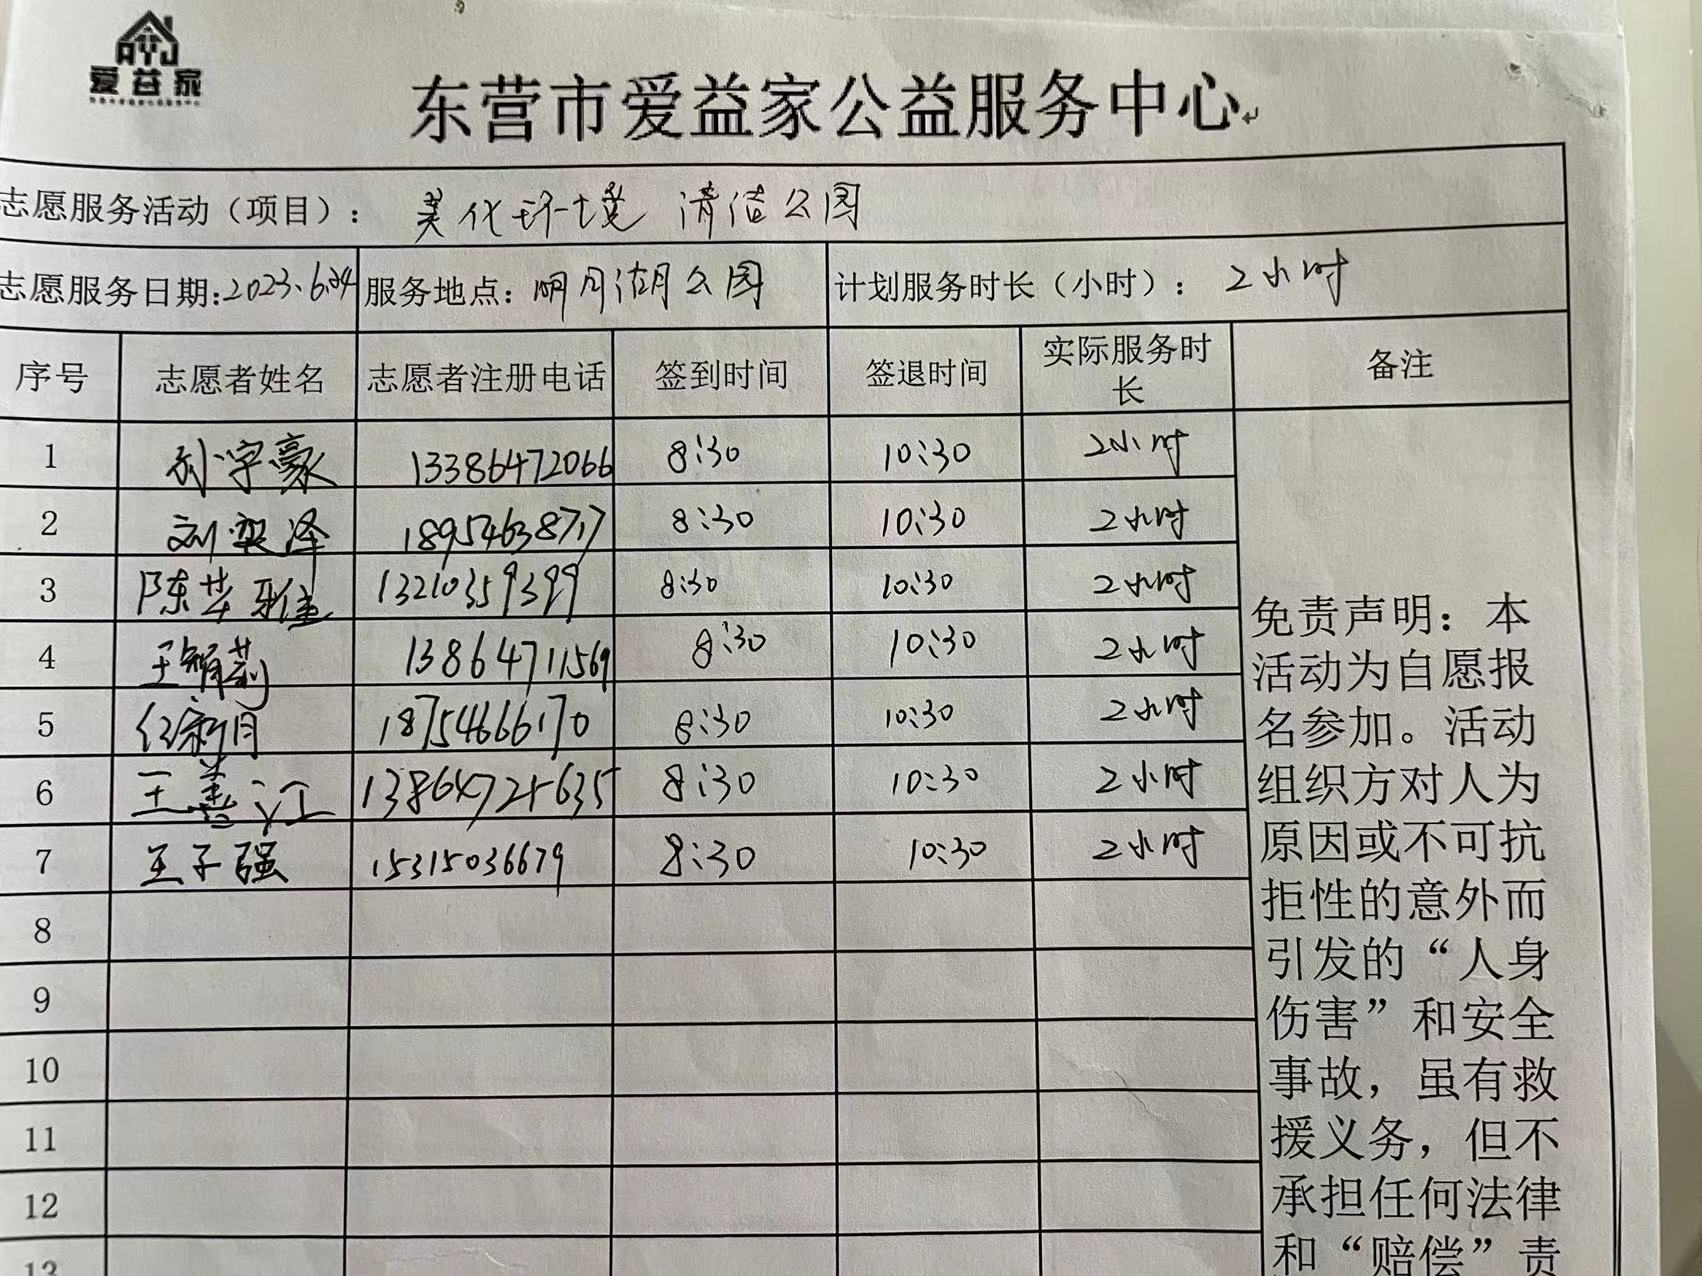 AYJ
爱益家
东营市爱益家公益服务中心
志愿服务活动（项目）： 美化环境 清洁公园
志愿服务日期：2023.6.24 服务地点：明月湖公园 计划服务时长（小时）： 2小时
序号 志愿者姓名 志愿者注册电话 签到时间 签退时间 实际服务时长 备注
1 孙宇豪 13386472066 8:30 10:30 2小时
2 刘奕泽 18954638717 8:30 10:30 2小时
3 陈梦雅 13210359399 8:30 10:30 2小时
4 王娟莉 13864711569 8:30 10:30 2小时
5 任新月 18754666170 8:30 10:30 2小时
6 王善江 13864725635 8:30 10:30 2小时
7 王子强 15315036679 8:30 10:30 2小时
8
9
10
11
12
13
免责声明：本
活动为自愿报
名参加。活动
组织方对人为
原因或不可抗
拒性的意外而
引发的“人身
伤害”和安全
事故，虽有救
援义务，但不
承担任何法律
和“赔偿”责